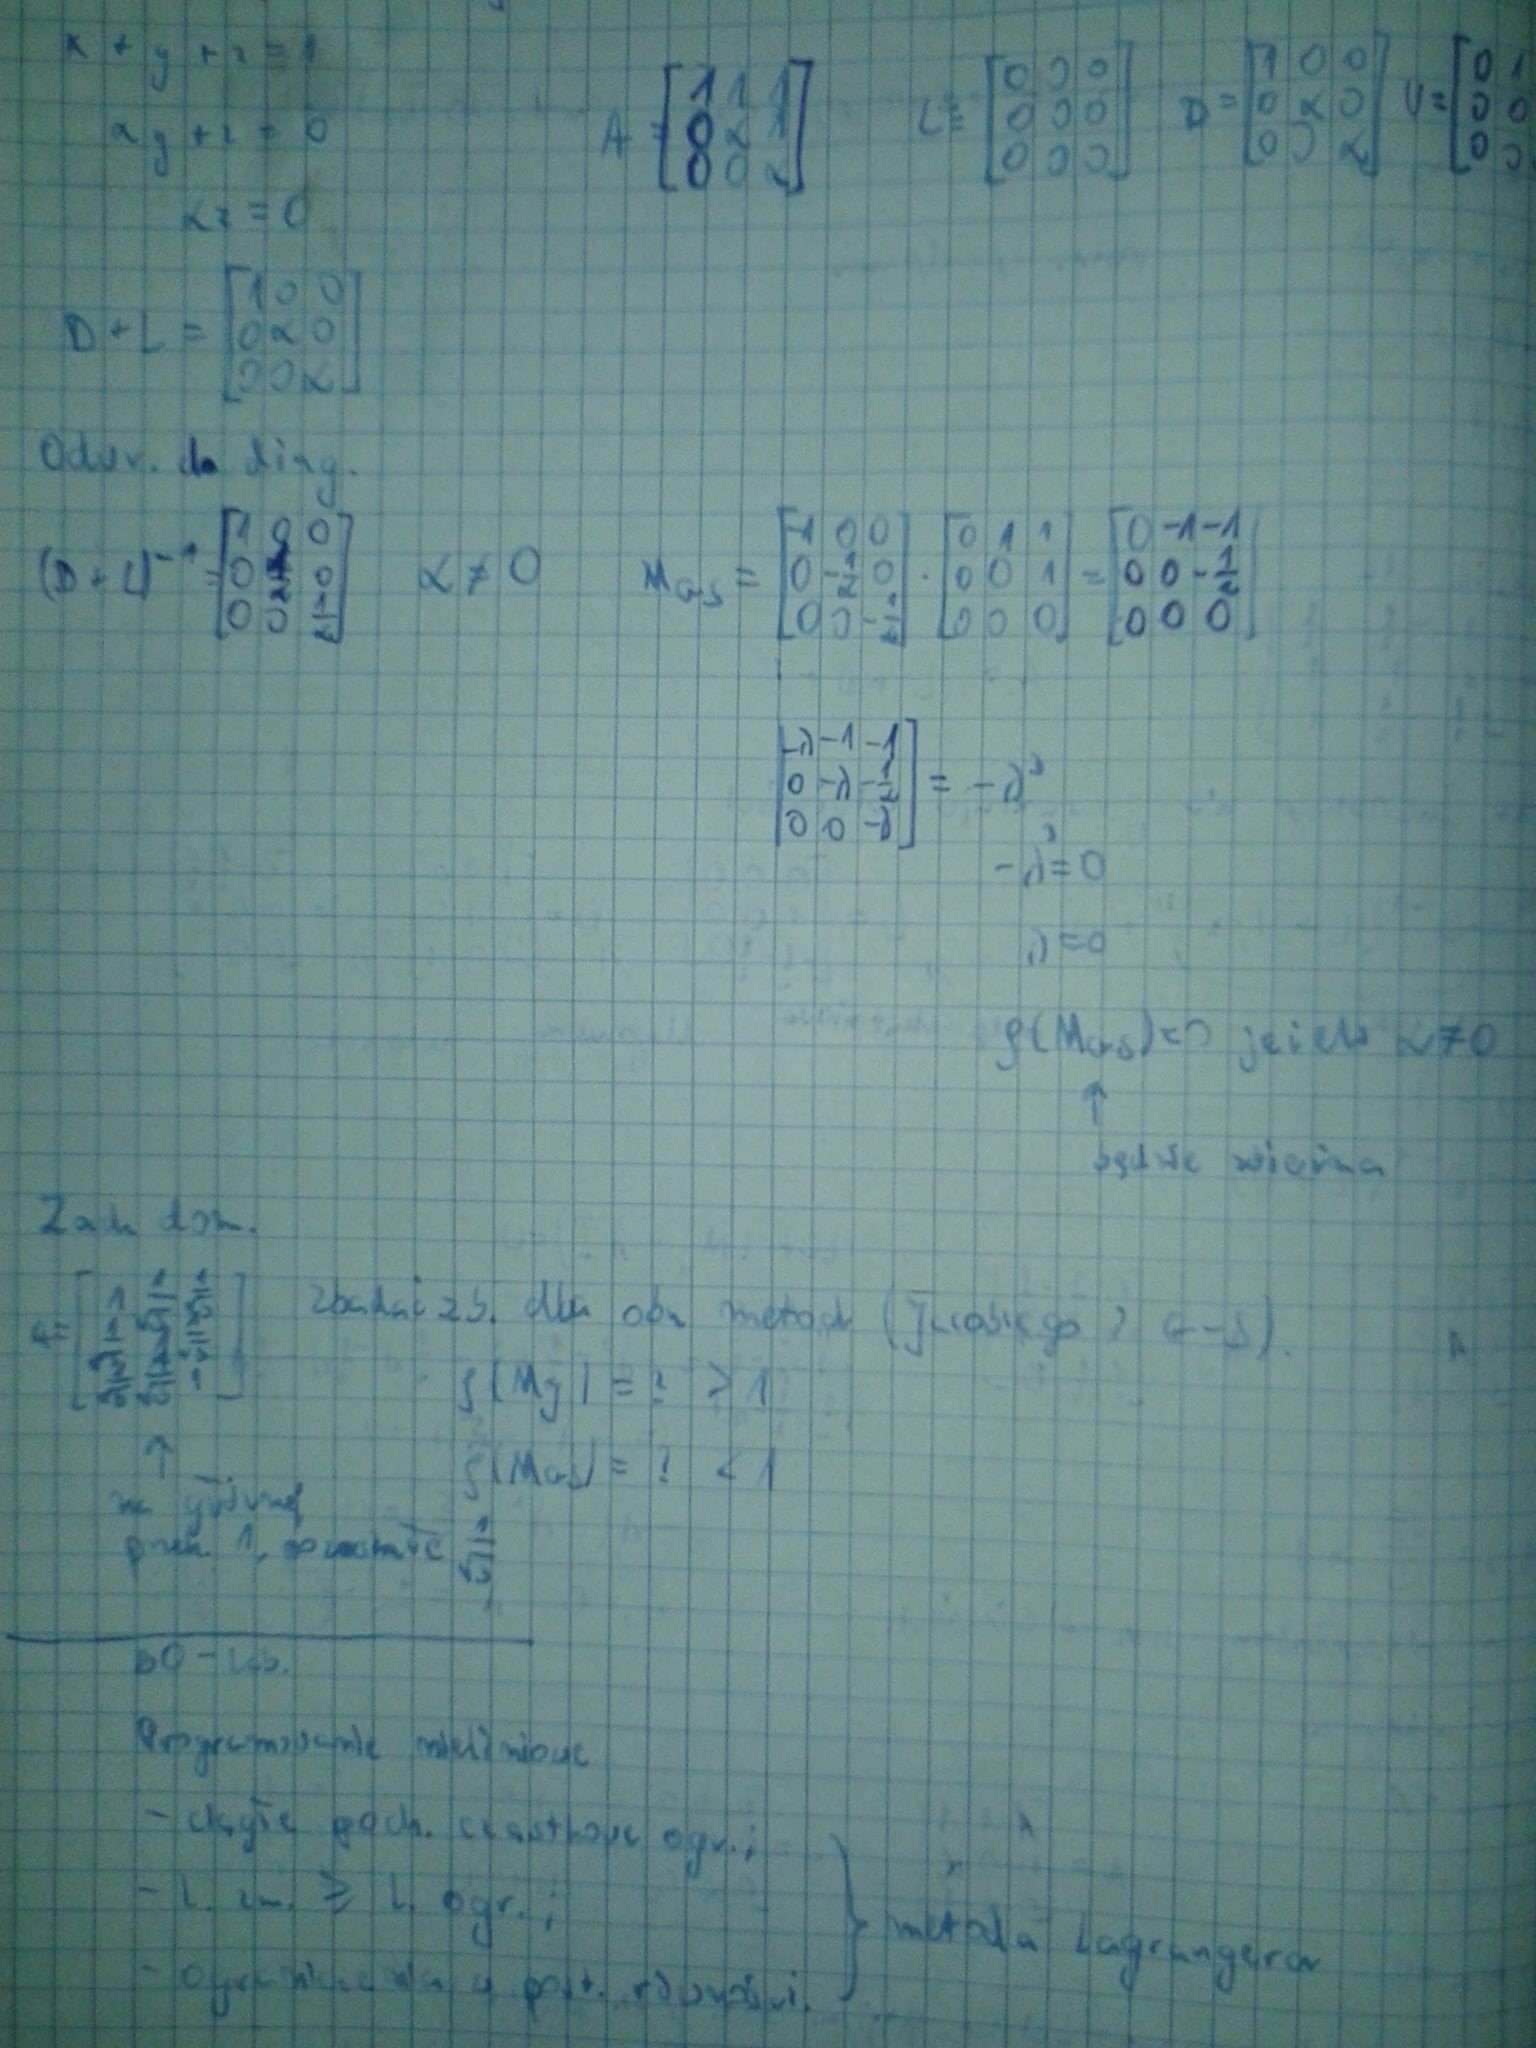 x + y + z = 1
αy + z = 0
αz = 0
A = [1 1 1; 0 α 1; 0 0 α] L = [0 0 0; 0 0 0; 0 0 0] D = [1 0 0; 0 α 0; 0 0 α] U = [0 1; 0 0; 0 0
D + L = [1 0 0; 0 α 0; 0 0 α]
Odwr. do diag.
(D + L)⁻¹ = [1 0 0; 0 1/α 0; 0 0 1/α] α ≠ 0 M_GS = [-1 0 0; 0 -1/α 0; 0 0 -1/α] · [0 1 1; 0 0 1; 0 0 0] = [0 -1 -1; 0 0 -1/α; 0 0 0]
[-λ -1 -1; 0 -λ -1/α; 0 0 -λ] = -λ³
-λ³ = 0
λ = 0
ρ(M_GS) = 0 jeżeli α ≠ 0
↑
będzie zbieżna
Zad. dom.
A = [1 1/√2 1/√2; 1/√2 1 1/√2; 1/√2 1/√2 1] Zbadać zb. dla obu metod (Jacobiego i G-S).
ρ(M_J) = ? ≥ 1
ρ(M_GS) = ? < 1
↑
na głównej
przek. 1, pozostałe 1/√2
BO - Lab.
Programowanie nieliniowe
- ciągłe poch. cząstkowe ogr.;
- l. zm. ≥ l. ogr.;
- ograniczenia w post. równości.
} metoda Lagrange'a